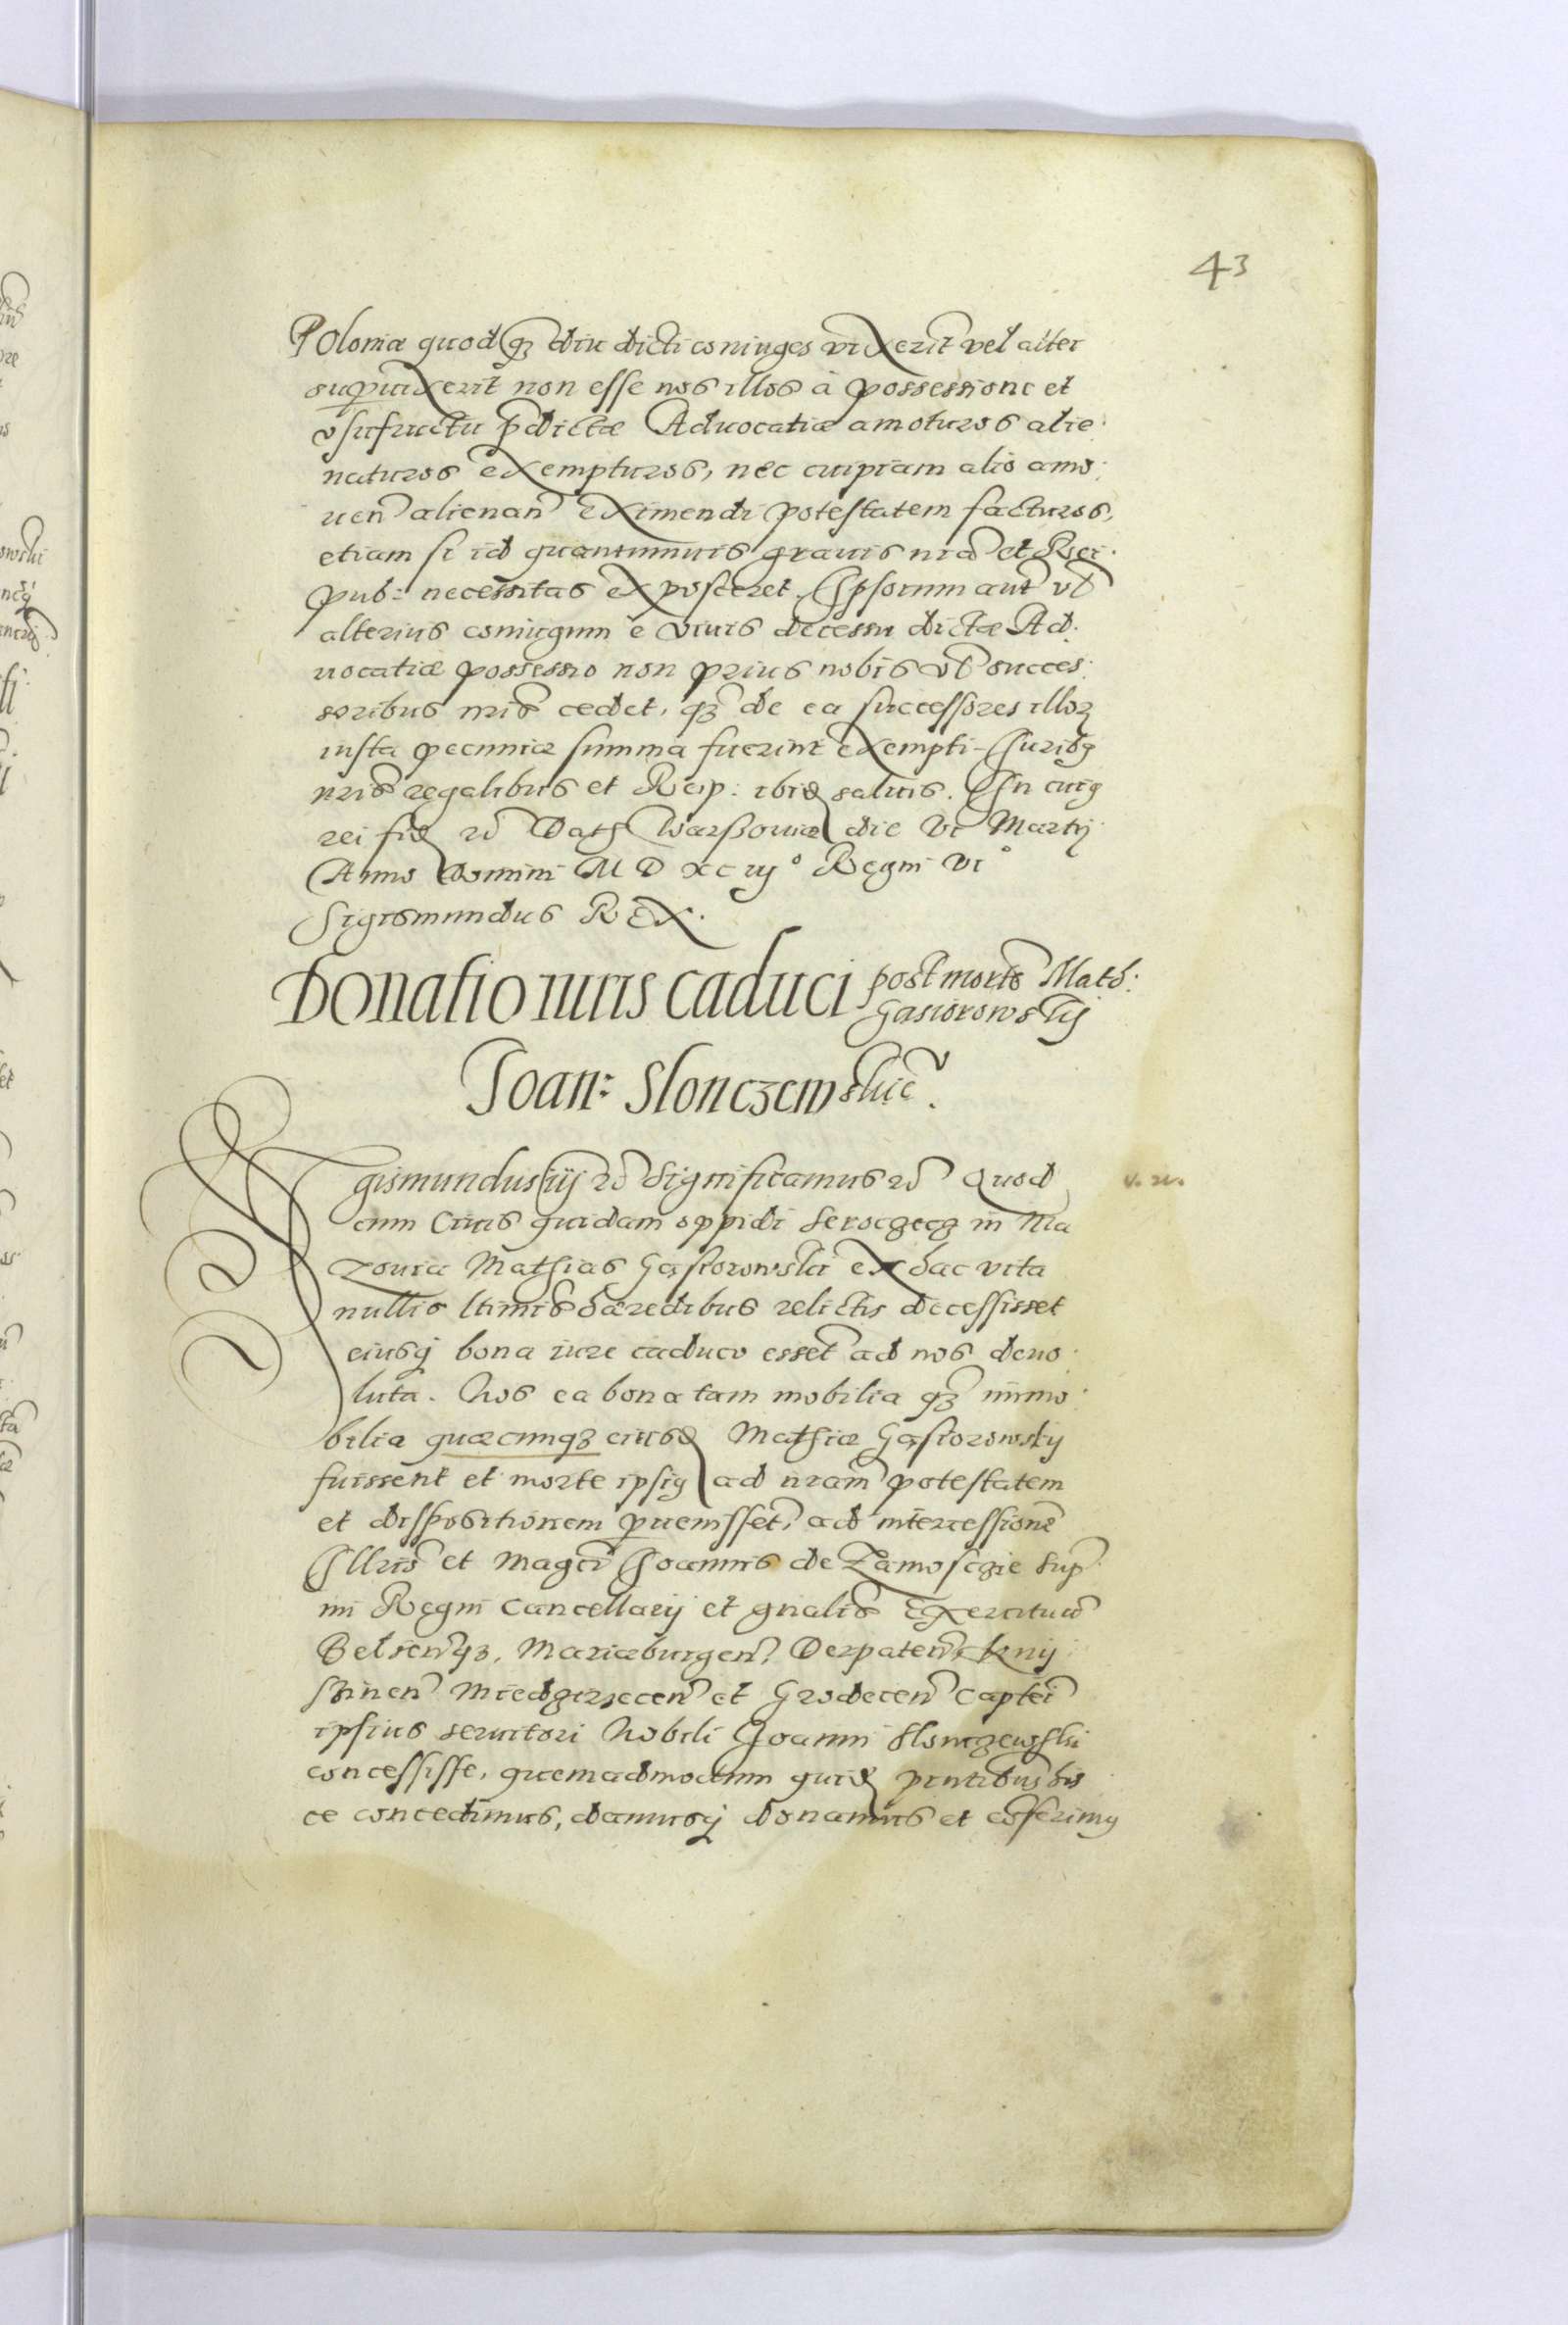 43
Poloniæ quod qȝ diu dicti coniuges vixerīt vel alter
supuixerit non esse nos illos à possessione et
vsufructu p̄dictæ Aduocatiæ amoturos alie:
naturos exempturos, nec cuipiam alio amo:
uen̄ alienan̄ eximendi potestatem facturos,
etiam si id quantumuis grauis nrā et Rei:
pub: necessitas exposceret. Ipsorum aut̄ vl̄
alterius coniugum e viuis decessu dictæ Ad:
uocatiæ possessio non prius nobis vl̄ succes:
soribus nris̄ cedet, qȝ de ea successores illoꝝ
iusta pecuniæ summa fuerint exempti. Iuribꝰ
nris̄ regalibus et Reip: ibid̄ saluis. In cuiꝰ
rei fid̄ ꝛc̄ Dat Warßouiæ die VI Martij
Anno Domini M D XC iij° Regni VI°
Sigismundus REX.
Donatio iuris caduci post morte Math:
Gasiorowskij
Joan: Slonczewskic̄.
Sigismundus iij ꝛc̄ Significamus ꝛc̄ Quod
cum Ciuis quidam oppidi Serocgecꝫ in Ma
zouia Mathias Gąsiorowski ex hac vita
nullis ltimis̄ hæredibus relictis decessisset
eiusqȝ bona iure caduco essēt ad nos deuo:
luta. Nos ea bona tam mobilia qȝ immo:
bilia quæcunqȝ eiusd̄ Mathiæ Gąsiorowskij
fuissent et morte ipsiꝰ ad nrām potestatem
et dispositionem ꝑuenissēt, ad intercessionē
Illris̄ et Magci̅ Ioannis de Zamoscgie Sup̄:
mi Regni Cancellarij et gnalis̄ Exercituū
Belsen̄qȝ, Mariæburgen̄, Derpaten̄, Knij:
ssinen̄ Miedgirzecen̄ et Grodecen̄ Captei̅
ipsius seruitori Nobili Joanni Slonczewski
concessisse, quemadmodum quid̄ pntibus̄ his
ce concedimus, damusqȝ donamus et cōferimꝰ